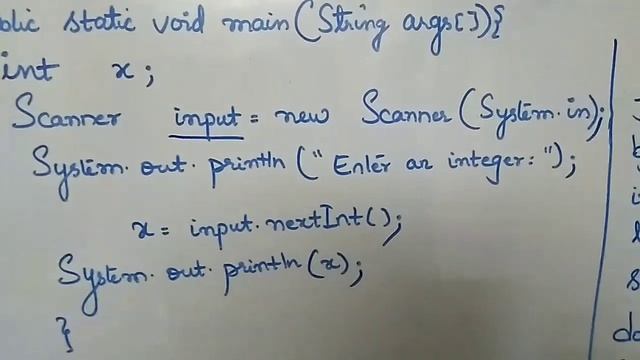 blic static void main(String args[]){
int x;
Scanner input = new Scanner(System.in);
System.out.println("Enter an integer:");
x = input.nextInt();
System.out.println(x);
}